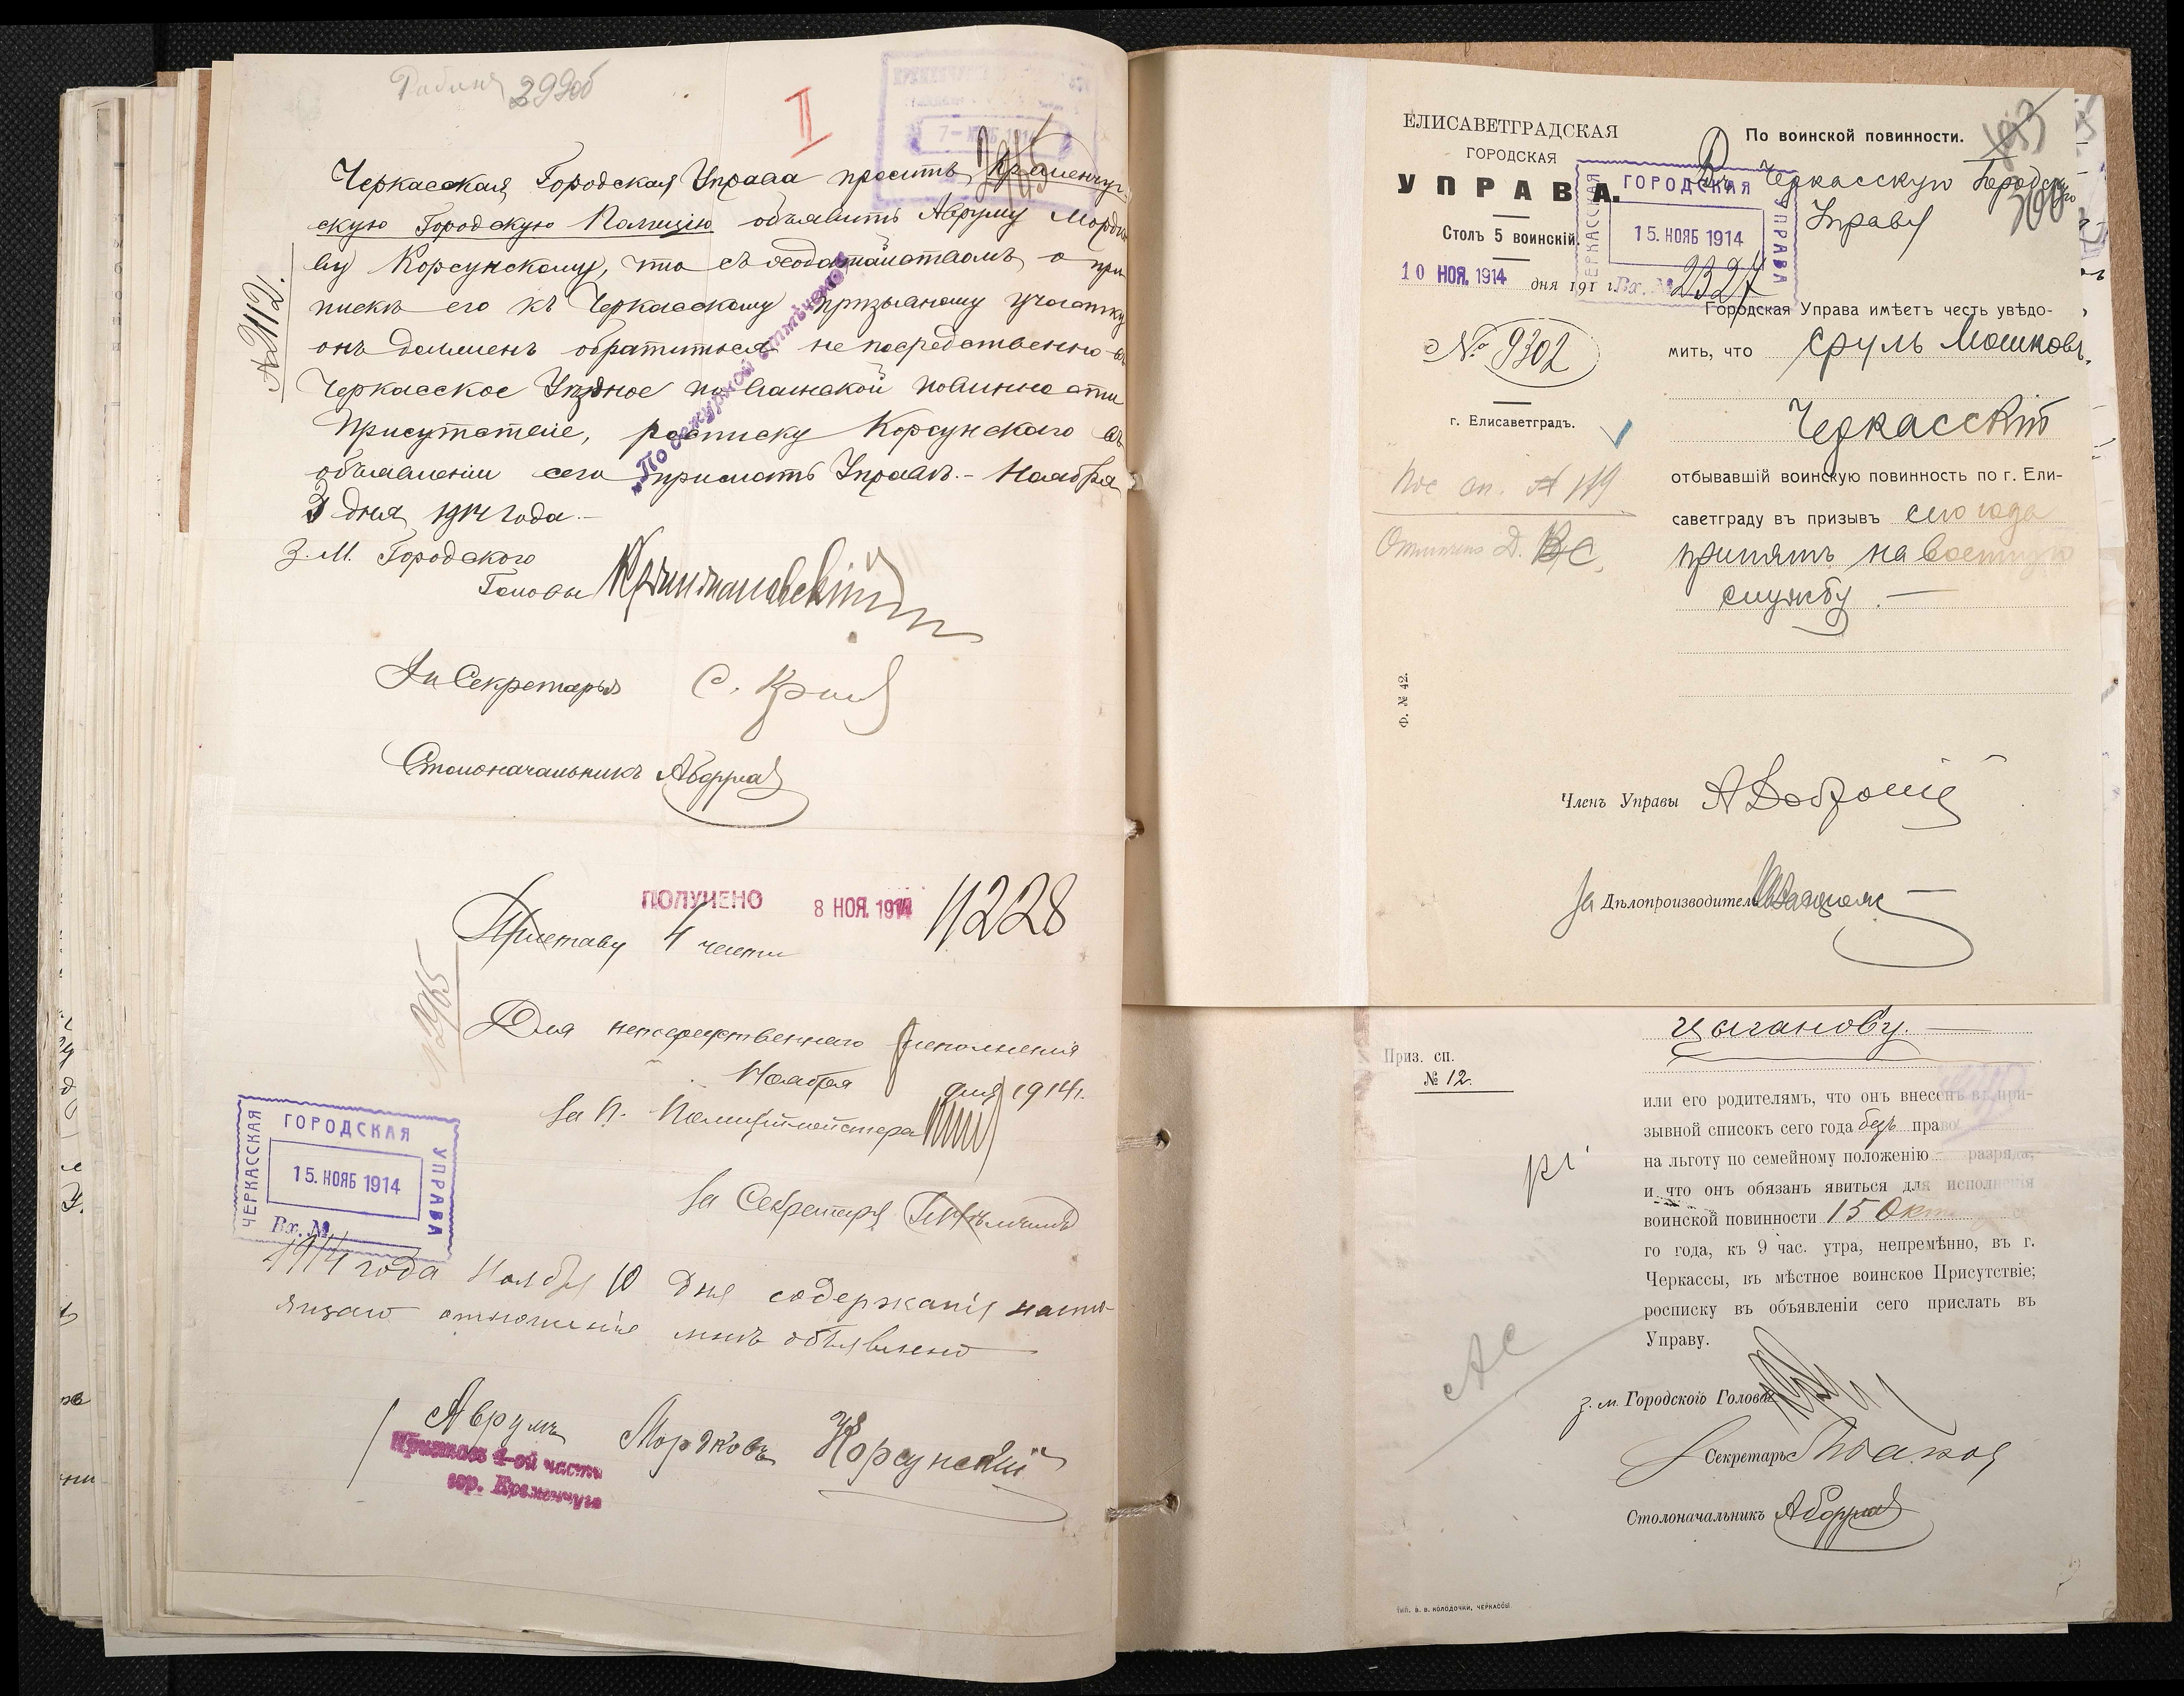 299об
II
7- НОЯБ 1914
Черкасская Городская Управа проситъ Кременчуг-
скую Городскую Полицію объявить Авруму Мордко-
ву Корсунскому, что съ ходатайствомъ о при
пискѣ его къ Черкасскому призывному участку
онъ долженъ обратиться непосредственно въ
Черкасское Уѣздное по воинской повинности
Присутствіе, росписку Корсунскаго въ
объявленіи сего прислать Управѣ.- Ноября
3 дня 1914 года.-
№ 2112.
З. М. Городского
Головы
За Секретаря
Столоначальникъ
ПОЛУЧЕНО 8 НОЯ. 1914 11228
Приставу 4 части
№ 2965
Для непосредственнаго исполненія
Ноября дня 1914 г.
За П. Полиціймейстера
За Секретаря
ЧЕРКАССКАЯ ГОРОДСКАЯ УПРАВА
15. НОЯБ 1914
Вх. №
1914 года Ноября 10 дня содержаніе насто-
ящаго отношенія мнѣ объявлено
Аврумъ Мордковъ Корсунскій
Приставъ 4-ой части
гор. Кременчуга
ЕЛИСАВЕТГРАДСКАЯ
ГОРОДСКАЯ
УПРАВА.
Столъ 5 воинскій.
10 НОЯ. 1914 дня 191 г.
№ 9302
г. Елисаветградъ.
Ф. № 42.
По воинской повинности.
300
Въ Черкасскую Городскую
Управу
ЧЕРКАССКАЯ ГОРОДСКАЯ УПРАВА
15. НОЯБ 1914
Вх. № 2327
Городская Управа имѣетъ честь увѣдо-
мить, что Сруль Мошковъ
Черкасскій
отбывавшій воинскую повинность по г. Ели-
саветграду въ призывъ сего года
принятъ на военную
службу.-
Членъ Управы
За Дѣлопроизводителя
Цыганову.
Приз. сп.
№ 12.
или его родителямъ, что онъ внесенъ въ при-
зывной списокъ сего года безъ права
на льготу по семейному положенію - разряда,
и что онъ обязанъ явиться для исполненія
воинской повинности 15 Окт се-
го года, къ 9 час. утра, непремѣнно, въ г.
Черкассы, въ мѣстное воинское Присутствіе;
росписку въ объявленіи сего прислать въ
Управу.
АС
з. м. Городского Головы
Секретарь
Столоначальникъ
ТИП. В. В. КОЛОДОЧКИ, ЧЕРКАССЫ